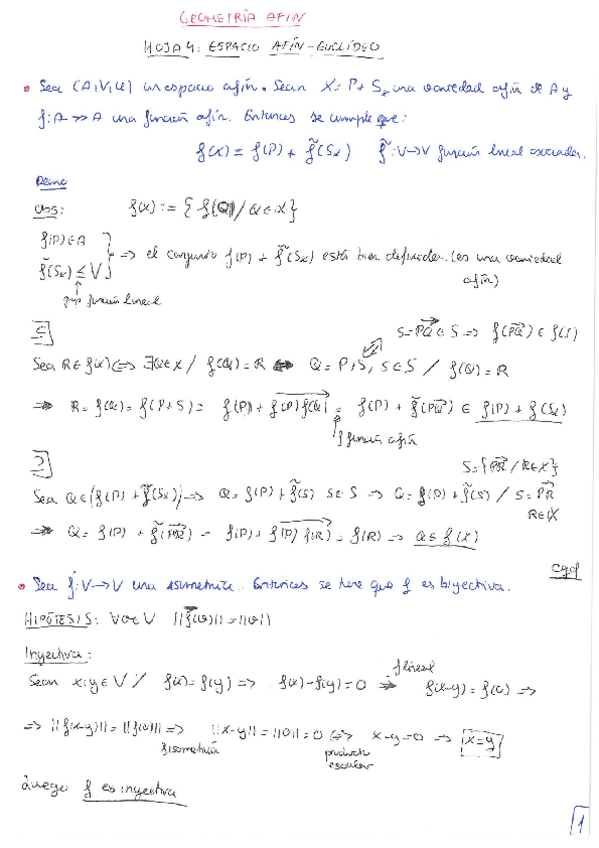 GEOMETRÍA AFIN
HOJA 4: ESPACIO AFÍN-EUCLÍDEO
• Sea (A,V,φ) un espacio afín. Sean X = P + Sx una variedad afín de A y
f: A → A una función afín. Entonces se cumple que:
f(X) = f(P) + f̃(Sx) f̃: V→V función lineal asociada.
Demo
Obs: f(X) := { f(Q) / Q ∈ X }
f(P) ∈ A
f̃(Sx) ≤ V
⇒ el conjunto f(P) + f̃(Sx) está bien definido. (es una variedad
afín)
f̃ función lineal
⊆]
S = PQ ∈ S ⇒ f(PQ) ∈ f(S)
Sea R ∈ f(X) ⇔ ∃Q ∈ X / f(Q) = R ⇔ Q = P + S, S ∈ S / f(Q) = R
⇒ R = f(Q) = f(P+S) = f(P) + f(P)f(Q) = f(P) + f̃(PQ) ∈ f(P) + f̃(Sx)
f función afín
⊇]
S = { PR / R ∈ X }
Sea Q ∈ (f(P) + f̃(Sx)) ⇒ Q = f(P) + f̃(S) S ∈ S ⇒ Q = f(P) + f̃(S) / S = PR
R ∈ X
⇒ Q = f(P) + f̃(PR) = f(P) + f(P)f(R) = f(R) ⇒ Q ∈ f(X)
cqd
• Sea f: V→V una isometría. Entonces se tiene que f es biyectiva.
HIPÓTESIS: ∀v ∈ V ||f(v)|| = ||v||
Inyectiva:
Sean x,y ∈ V / f(x) = f(y) ⇒ f(x) - f(y) = 0 ⇒ f(x-y) = f(0) ⇒
f lineal
⇒ ||f(x-y)|| = ||f(0)|| ⇒ ||x-y|| = ||0|| = 0 ⇔ x-y = 0 ⇒ x = y
f isometría
producto
escalar
Luego f es inyectiva
1